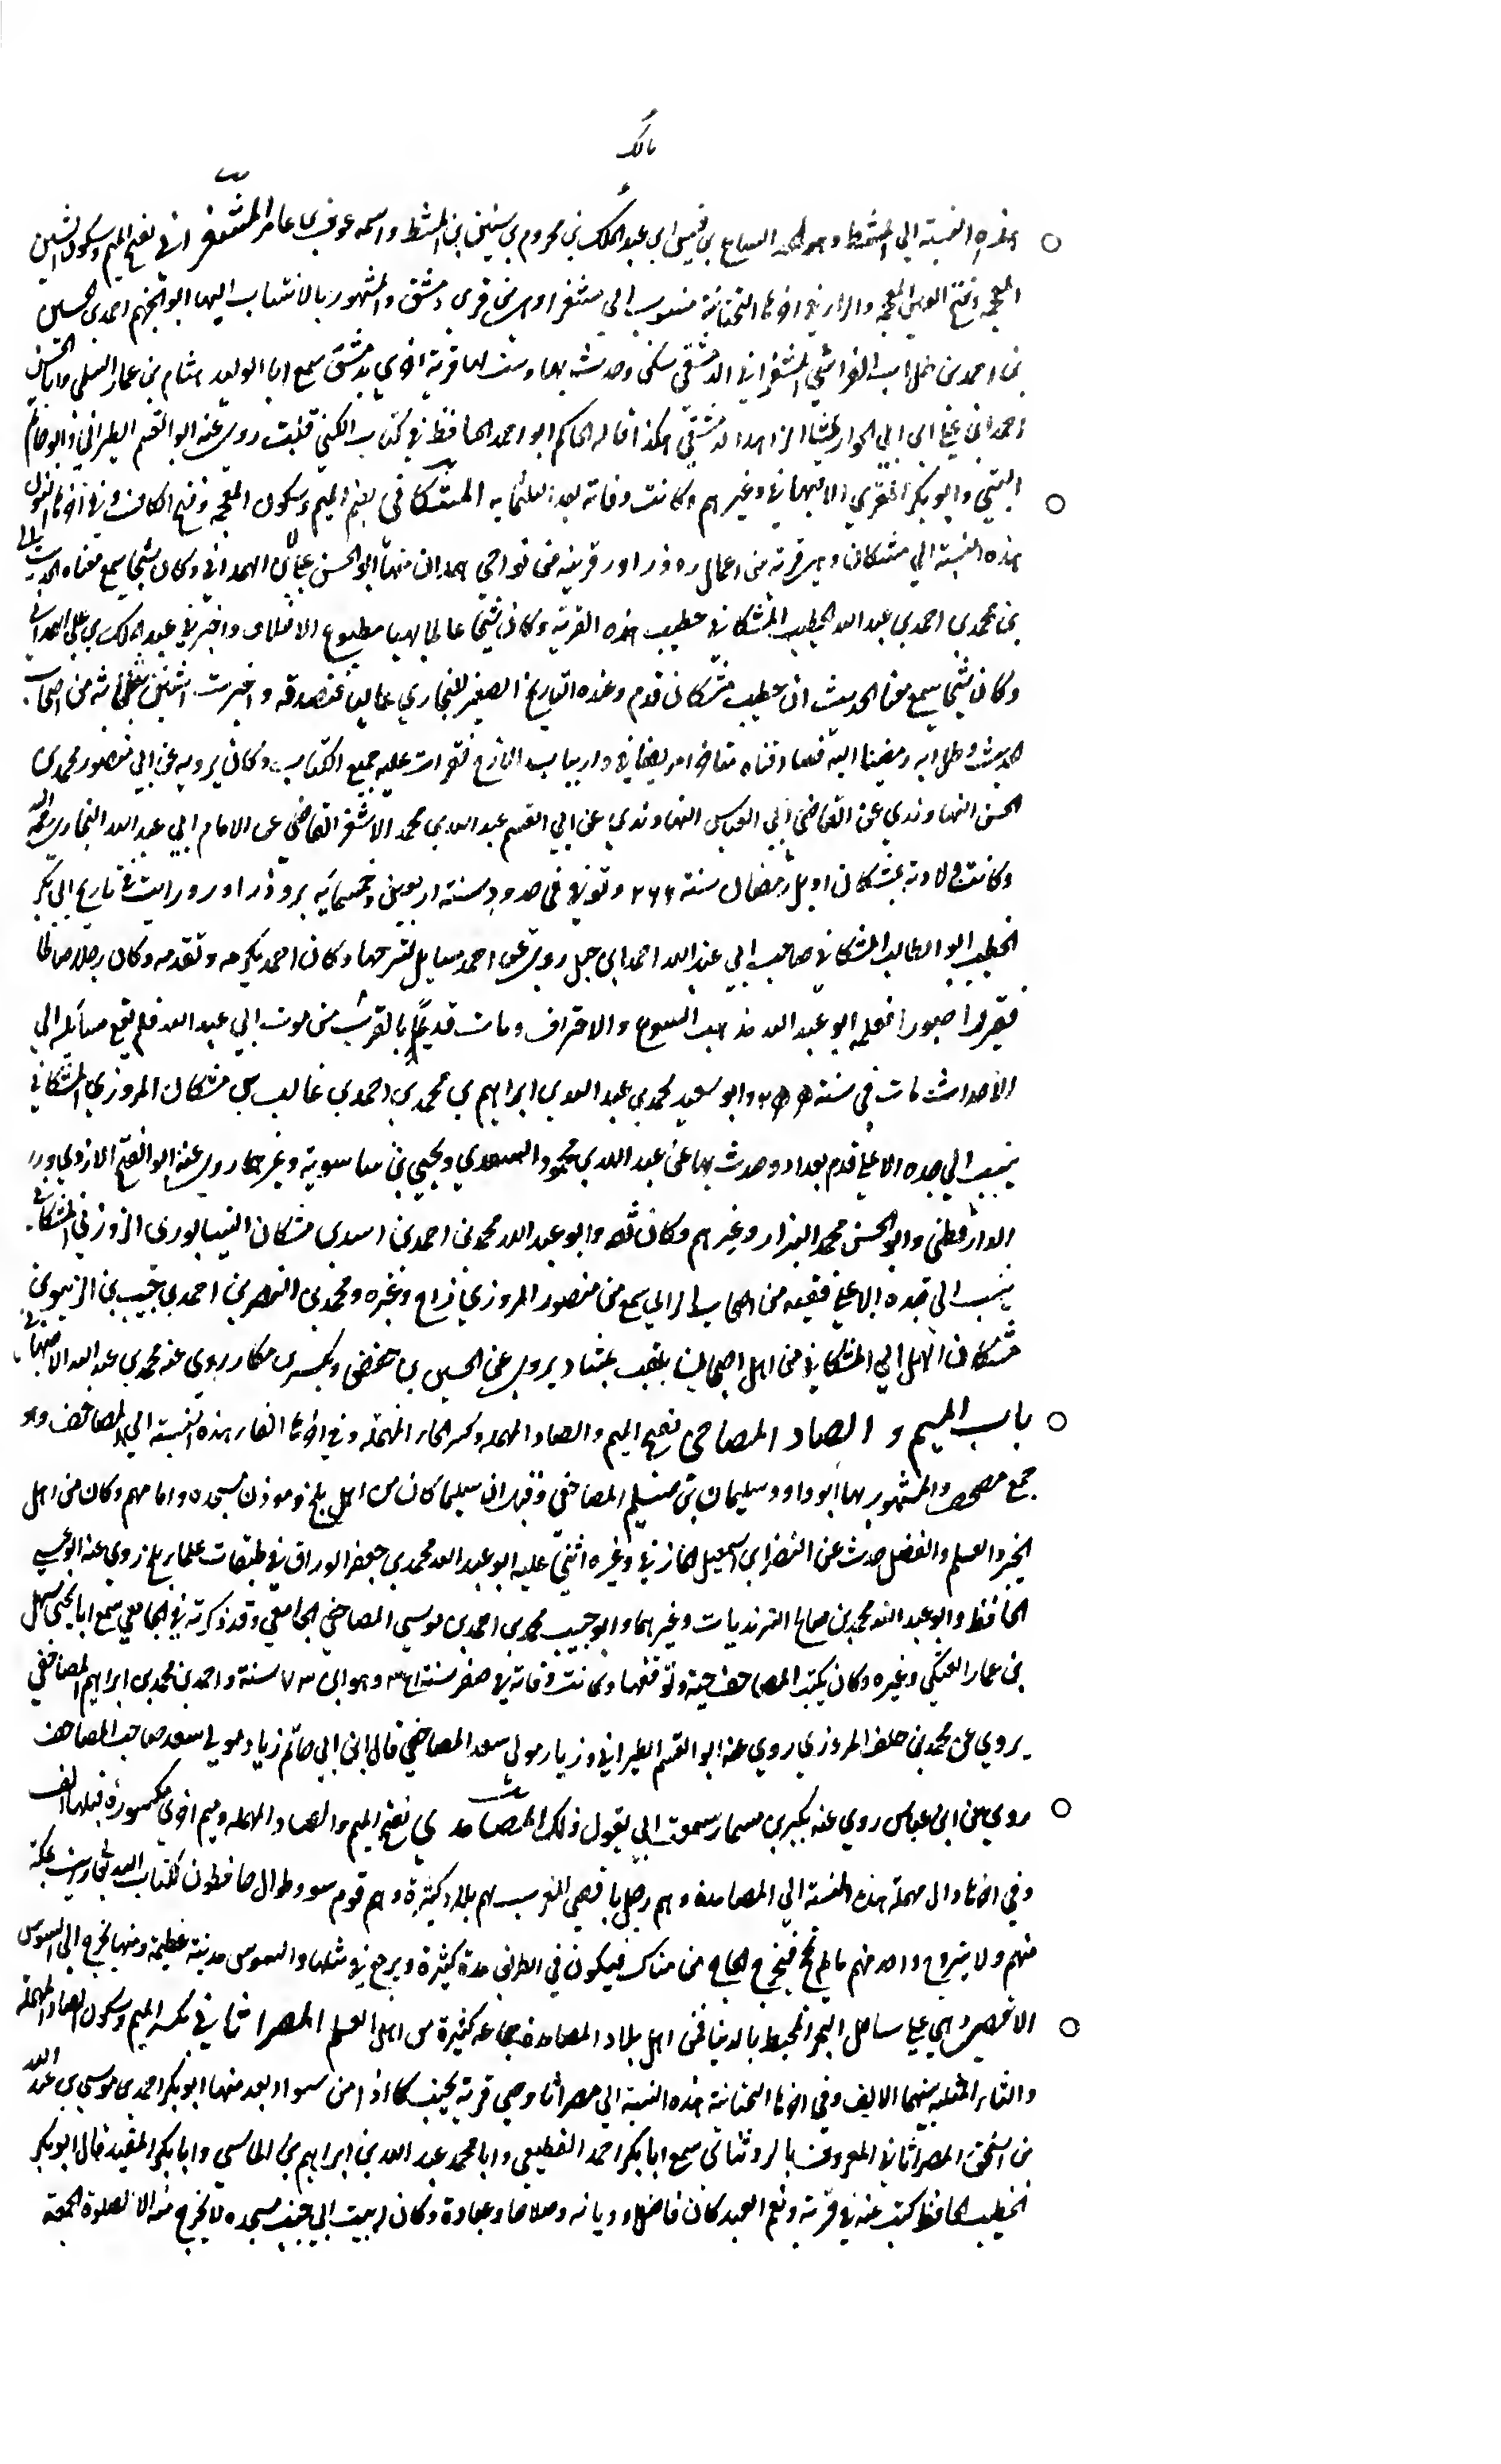 مالك
هذه النسبة الى المشط وهو لقب الصباح بن قيس ابن عبد الملك بن مخروم بن سفين بن المشط واسمه عوف بن عامر المشغراني بفتح الميم وسكون الشين
المعجمة وفتح الغين المعجمة والراء وفي اخرها التحتانية منسوب الى مشغرا وهي من قرى دمشق والمشهور بالانتساب اليها ابو الجهم احمد بن الحسين
بن احمد بن طلاب القرشي المشغراني الدمشقي سكن وحدث بها وبيت لهيا قرية اخرى بدمشق سمع ابا الوليد هشام بن عمار السلمي وابا الحسن
احمد ابن ابي الحواري الزاهد الدمشقي هكذا قاله الحاكم ابو احمد الحافظ في كتاب الكنى قلت روى عنه ابو القسم الطبراني وابو حاتم
البستي وابو بكر المقري الاصبهاني وغيرهم وكانت وفاته بعد الثلثمايه المشكاني بضم الميم وسكون المعجمة وفتح الكاف وفي اخرها النون
هذه النسبة الى مشكان وهي قرية من اعمال روذراور قريبة من نواحي همدان منها ابو الحسن علي
بن محمد بن احمد بن عبد الله الخطيب المشكاني خطيب هذه القرية وكان شيخا عالما بهيا مطبوع الاخلاق واخبرني عبد الملك بن علي الهمداني
وكان شيخا سمع معنا الحديث ان خطيب مشكان قدم وعنده التاريخ الصغير للبخاري عاليا فنصدقه واخبرت
فقرات عليه جميع الكتاب وكان يرويه عن ابي منصور محمد بن
الحسن النهاوندي عن القاضي ابي العباس النهاوندي عن ابي القسم عبد الله بن محمد الاشقر القاضي عن الامام ابي عبد الله البخاري رحمه الله
وكانت ولادته بمشكان اول رمضان سنة ٤٦٦ وتوفي في حدود سنة اربعين وخمسمايه بروذراور ورايت في تاريخ ابي بكر
الخطيب ابو الطالب المشكاني صاحب ابي عبد الله احمد ابن حنبل روى عن احمد مسايل تفرد بها وكان احمد يكرمه ويقدمه وكان رجلا صالحا
فقيرا صبورا فعلمه ابو عبد الله مذهب القنوع والاحتراف ومات قديما بالقرب من موت ابي عبد الله فلم تقع مسايله الى
الاحداث مات في سنة وابو سعيد محمد بن عبد الله بن ابراهيم بن محمد بن احمد بن غالب بن مشكان المروزي المشكاني
ينسب الى جده الاعلى قدم بغداد وحدث بها عن عبد الله بن محمود السعدي ويحيى بن ساسويه وغيرهما روى عنه ابو الفتح الازدي
الدارقطني وابو الحسن محمد البزار وغيرهم وكان ثقة وابو عبد الله محمد بن احمد بن اسد بن مشكان النيسابوري الزوزني المشكاني
ينسب الى جده الاعلى فقيه من اصحاب الراي سمع من منصور المروزي زاج وغيره ومحمد بن النصر بن احمد بن حبيب بن الزبيرقان
مشكان الهلالي المشكاني من اهل اصبهان يلقب بمشاد يروي عن الحسين بن حفص وبكر بن بكار روى عنه محمد بن عبد الله الاصبهاني
باب الميم والصاد المصاحفي بفتح الميم والصاد المهمله وكسر الحاء المهملة وفي اخرها الفاء هذه النسبة الى المصاحف وهو
جمع مصحف والمشهور بها ابو داود سليمان بن سليم المصاحفي وقيل ان سليما كان من اهل بلخ وموذن مسجده وامامهم وكان من اهل
الخير والعلم والفضل حدث عن النضر ابن شميل المازني وغيره اثنى عليه ابو عبد الله محمد بن جعفر الوراق في طبقات علماء بلخ روى عنه ابو عيسى
الحافظ وابو عبد الله محمد بن صالح الترمذيان وغيرهما وابو حبيب محمد بن احمد بن موسى المصاحفي الجامعي وقد ذكرته في الجامعي سمع ابا يحيى سهل
بن عمار العتكي وغيره وكان يكتب المصاحف حسبة ويوقفها وكانت وفاته في صفر سنة وهو ابن ٧٣ سنة واحمد بن محمد بن ابراهيم المصاحفي
يروي عن محمد بن خلف المروزي روى عنه ابو القسم الطبراني وزياد مولى سعد المصاحفي قال ابن ابي حاتم زياد مولى سعد صاحب المصاحف
روى عن ابن عباس روى عنه بكير بن مسمار سمعت ابي يقول ذلك المصامدي بفتح الميم والصاد المهمله وميم اخرى مكسورة قبلها الف
وفي اخرها دال مهملة هذه النسبة الى المصامدة وهم رجل باقصى المغرب لهم بلاد كثيرة وهم قوم سود طوال حافظون لكتاب الله
منهم ولا يتزوج واحد منهم ما لم يحج فيخرج الحاج من هناك فيكون في الطريق مدة كثيرة ويرجع في مثلها والسوس مدينة عظيمة ومنها يخرج الى السوس
الاقصى وهي على ساحل البحر المحيط بالدنيا فمن اهل بلاد المصامدة جماعة كثيرة من اهل العلم المصراثاني بكسر الميم وسكون الصاد المهملة
والثاء المثلثة بينهما الالف وفي اخرها التحتانية هذه النسبة الى مصراثا وهي قرية بجنب كلواذا من سواد بغداد منها ابو بكر احمد بن موسى بن عبد الله
بن اسحق المصراثاني المعروف بالروشناني سمع ابا بكر احمد القطيعي وابا محمد عبد الله بن ابراهيم بن الماسي وابا بكر المفيد قال ابو بكر
الخطيب الحافظ كتبت عنه في قريته ونعم العبد كان فاضلا وديانه وصلاحا وعبادة وكان له بيت الى جنب مسجده لا يخرج منه الا لصلوة الجمعة